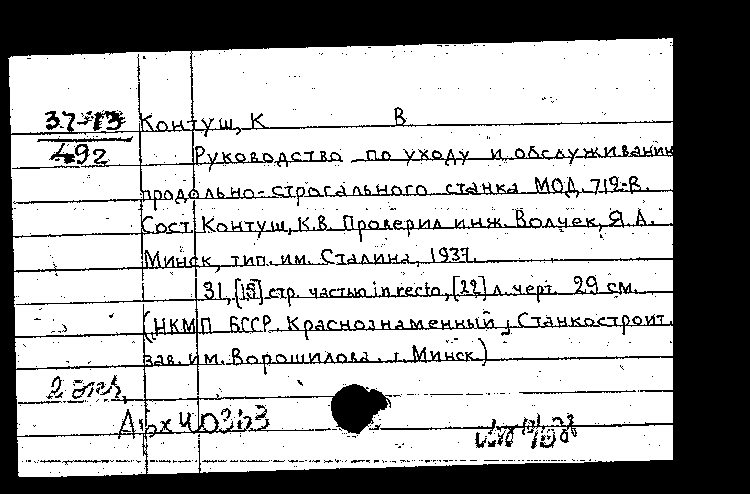 37-13 Контуш, К В
492 Руководство по уходу и обслуживанию
продольно-строгального станка МОД. 712-В.
Сост. Контуш, К.В. Проверил инж. Волчек, Я.А.
Минск, тип. им. Сталина, 1937.
31, [15] стр. частью in recto, [22] л. черт. 29 см.
(НКМП БССР. Краснознаменный Станкостроит.
зав. им. Ворошилова. г. Минск)
2 экз.